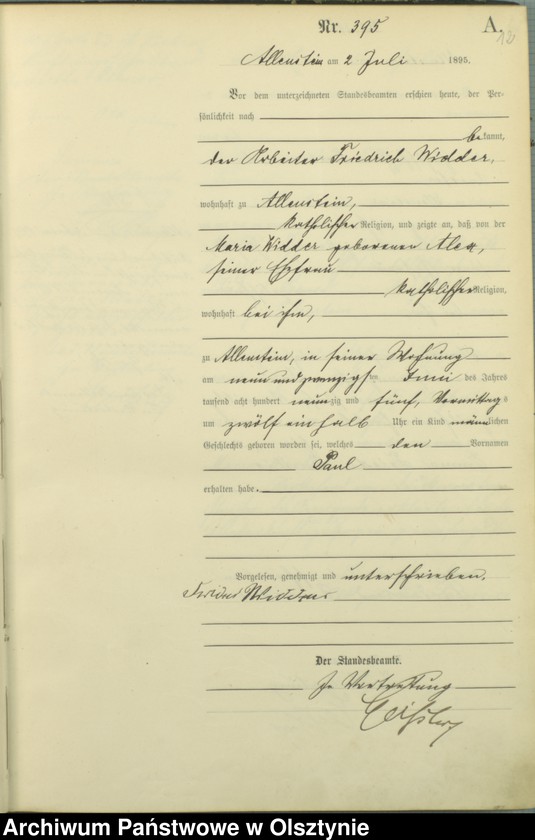 Nr. 395
A.
12
Allenstein am 2 Juli 1895.
Vor dem unterzeichneten Standesbeamten erschien heute, der Per-
sönlichkeit nach
bekannt,
der Arbeiter Friedrich Widder,
wohnhaft zu Allenstein,
katholischer Religion, und zeigte an, daß von der
Maria Widder geborenen Alex,
seiner Ehefrau
katholischer Religion,
wohnhaft bei ihm,
zu Allenstein, in seiner Wohnung
am neun und zwanzigsten Juni des Jahres
tausend acht hundert neunzig und fünf, Vormittags
um zwölf einhalb Uhr ein Kind männlichen
Geschlechts geboren worden sei, welches den Vornamen
Paul
erhalten habe.
Vorgelesen, genehmigt und unterschrieben.
Widder
Der Standesbeamte.
In Vertretung
Archiwum Państwowe w Olsztynie